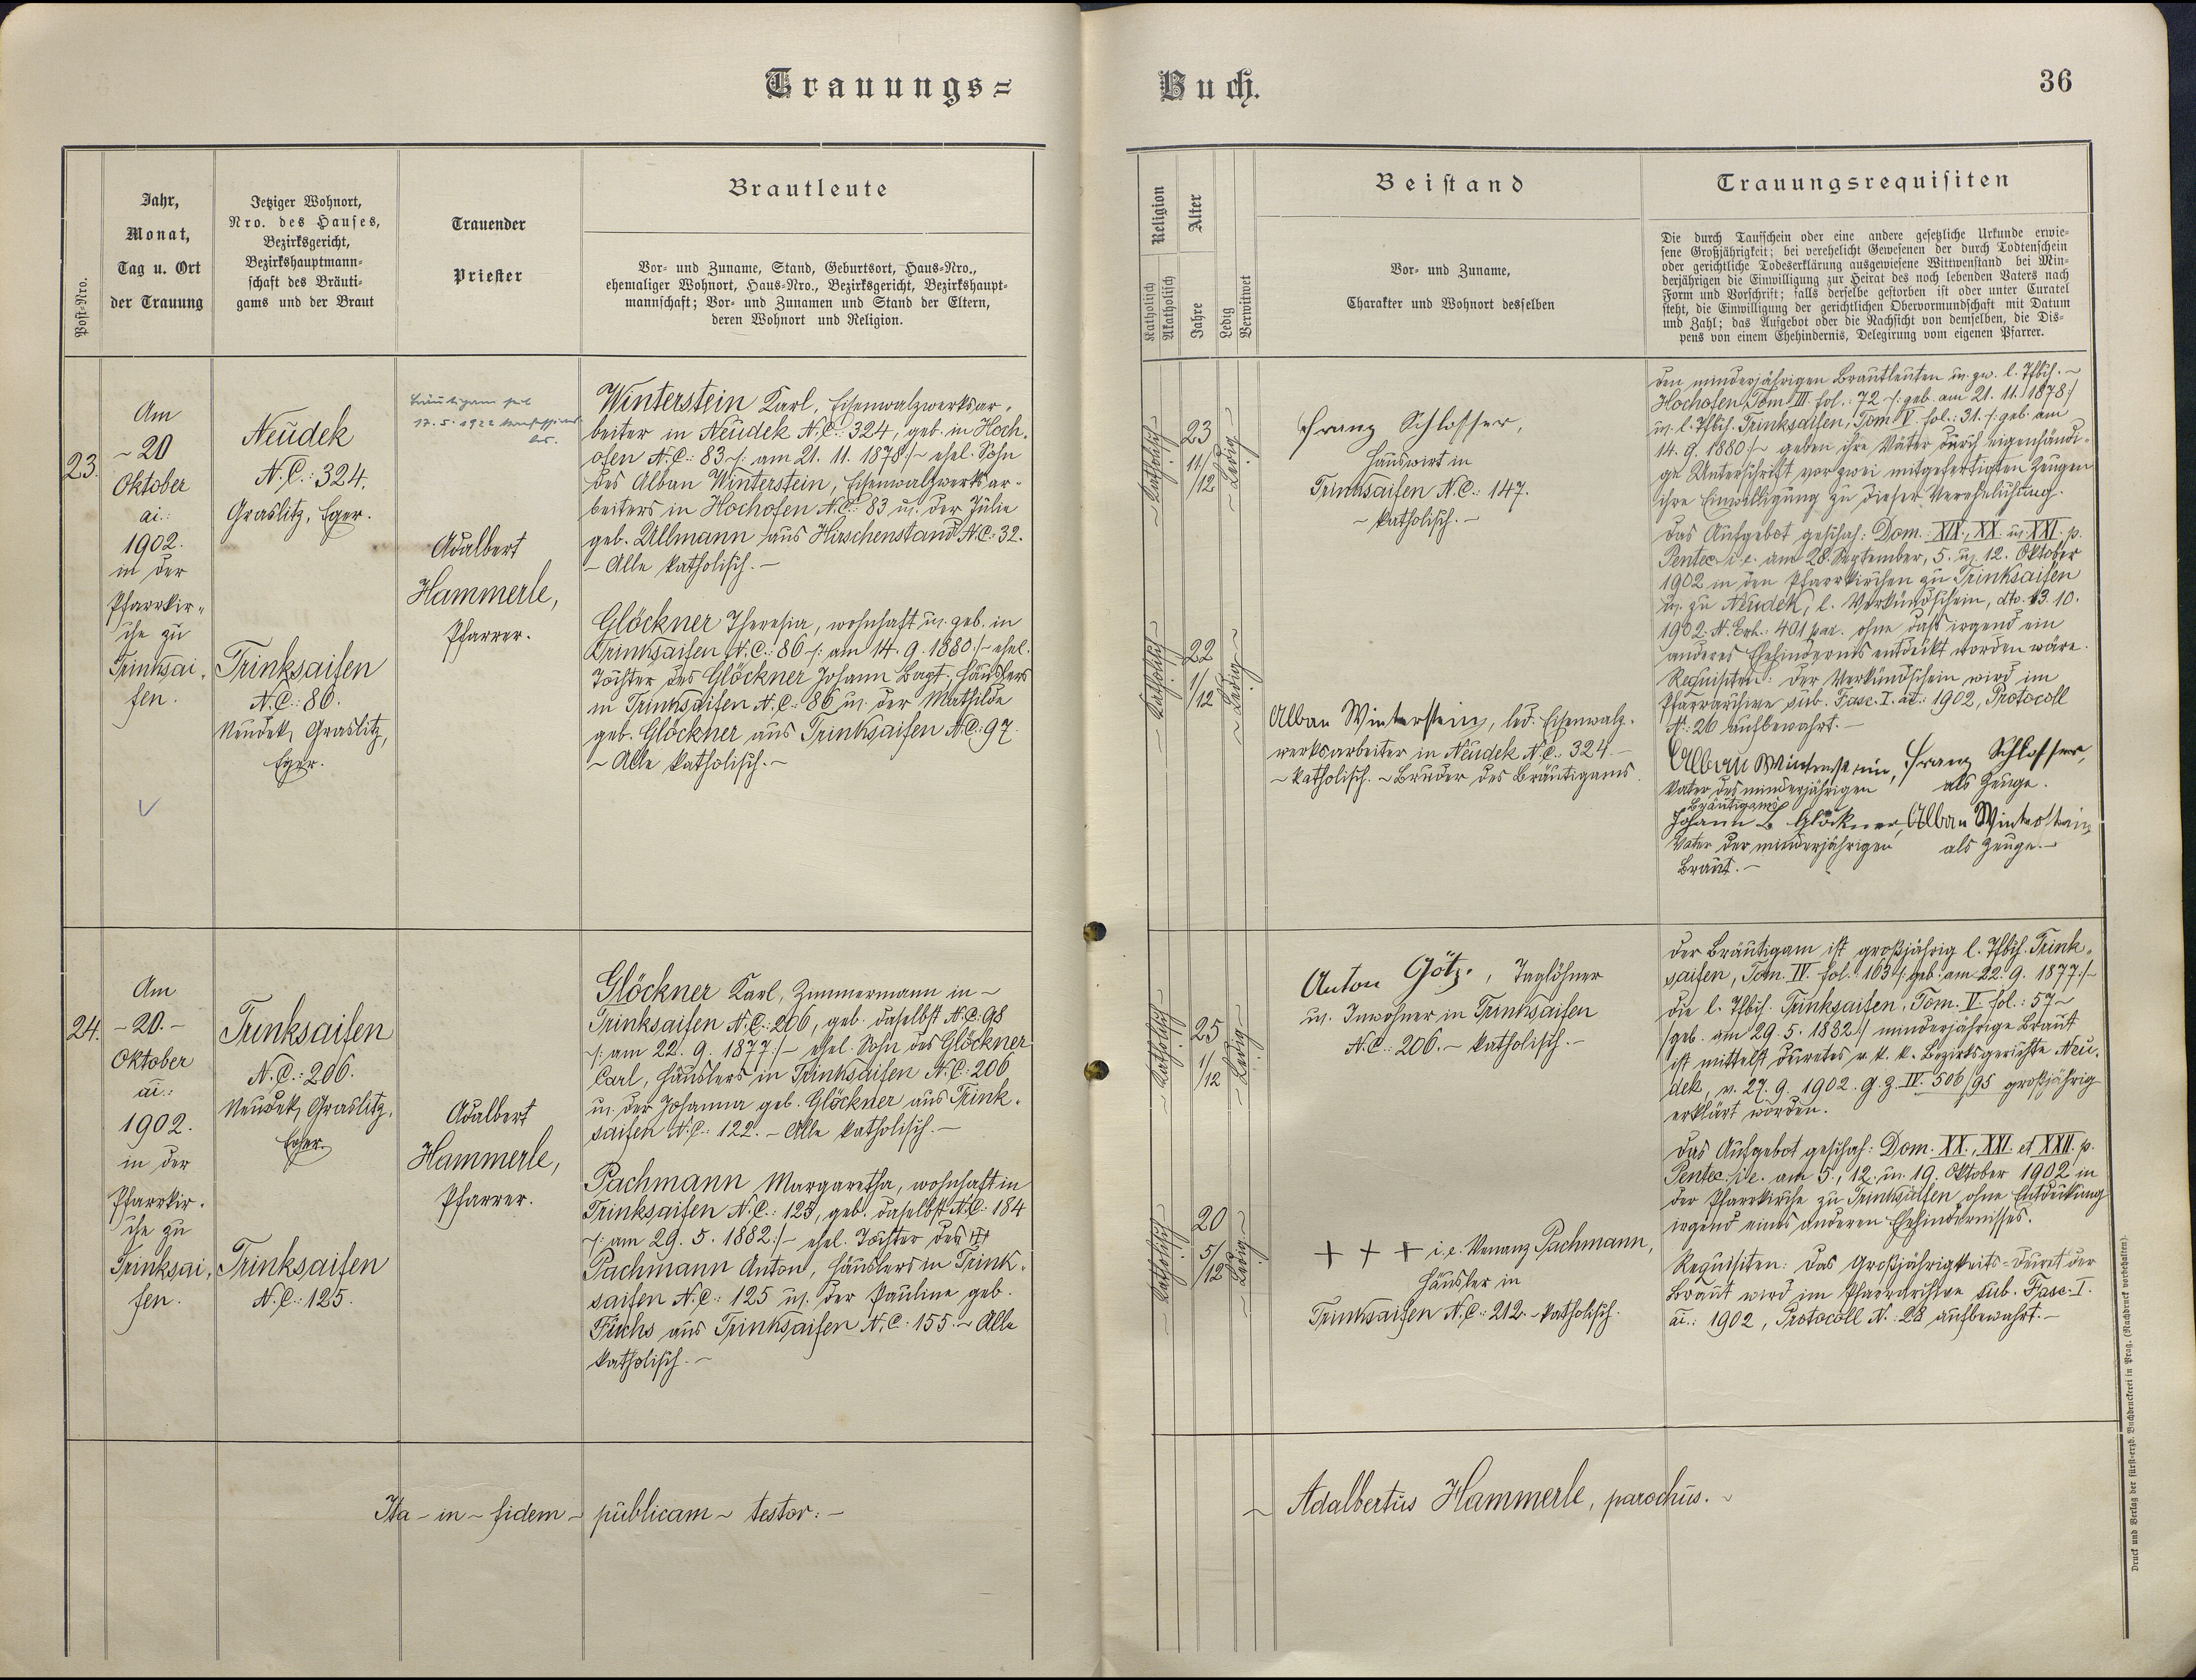 Trauungs=
Buch.
36
Post-Nro.
Jahr,
Monat,
Tag u. Ort
der Trauung
Jetziger Wohnort,
Nro. des Hauses,
Bezirksgericht,
Bezirkshauptmann=
schaft des Bräuti=
gams und der Braut
Trauender
Priester
Brautleute
Vor- und Zuname, Stand, Geburtsort, Haus-Nro.,
ehemaliger Wohnort, Haus-Nro., Bezirksgericht, Bezirkshaupt=
mannschaft; Vor- und Zunamen und Stand der Eltern,
deren Wohnort und Religion.
Religion
Katholisch
Akatholisch
Alter
Jahre
Ledig
Verwitwet
Beistand
Vor- und Zuname,
Charakter und Wohnort desselben
Trauungsrequisiten
Die durch Taufschein oder eine andere gesetzliche Urkunde erwie=
sene Großjährigkeit; bei verehelicht Gewesenen der durch Todtenschein
oder gerichtliche Todeserklärung ausgewiesene Wittwenstand bei Min=
derjährigen die Einwilligung zur Heirat des noch lebenden Vaters nach
Form und Vorschrift; falls derselbe gestorben ist oder unter Curatel
steht, die Einwilligung der gerichtlichen Obervormundschaft mit Datum
und Zahl; das Aufgebot oder die Nachsicht von demselben, die Dis=
pens von einem Ehehindernis, Delegirung vom eigenen Pfarrer.
23.
Am
~20
Oktober
ai.:
1902.
in der
Pfarrkir=
che zu
Trinksai=
fen.
Neudek
N.C.: 324.
Graslitz, Eger.
Trinksaifen
N.C.: 86.
Neudek, Graslitz,
Eger.
Bräutigam seit
17. 5. 1922 konfessions
los.
Adalbert
Hammerle,
Pfarrer.
Winterstein Karl, Eisenwalzwerksar=
beiter in Neudek N.C.: 324, geb. in Hoch=
ofen N.C.: 83 /: am 21. 11. 1878 :/ ~ ehel. Sohn
des Alban Winterstein, Eisenwalzwerksar=
beiters in Hochofen N.C.: 83 u. der Julie
geb. Ullmann aus Hirschenstand N.C.: 32.
~ Alle katholisch. ~
Glöckner Theresia, wohnhaft u. geb. in
Trinksaifen N.C.: 86 /: am 14. 9. 1880 :/ ~ ehel.
Tochter des Glöckner Johann Bapt., Häuslers
in Trinksaifen N.C.: 86 u. der Mathilde
geb. Glöckner aus Trinksaifen N.C.: 97.
~ Alle katholisch. ~
~ Katholisch ~
23
11/12
~ Ledig ~
~ Katholisch ~
22
1/12
~ Ledig ~
Franz Schlosser,
Hauswirt in
Trinksaifen N.C.: 147.
~ katholisch. ~
Alban Winterstein, led. Eisenwalz=
werksarbeiter in Neudek N.C.: 324. ~
~ katholisch. ~ Bruder des Bräutigams.
Den minderjährigen Brautleuten u. zw. l. Tfbch. ~
Hochofen, Tom. III. fol.: 72 /: geb. am 21. 11. 1878 :/
u. l. Tfbch. Trinksaifen, Tom. V. fol.: 31. /: geb. am
14. 9. 1880 :/ ~ geben ihre Väter durch eigenhändi=
ge Unterschrift vor zwei mitgefertigten Zeugen
ihre Einwilligung zu dieser Verehelichung.
Das Aufgebot geschah: Dom. XIX., XX. u. XXI. p.
Pentec. i. e. am 28. September, 5. u. 12. Oktober
1902 in den Pfarrkirchen zu Trinksaifen
u. zu Neudek, l. Verkündschein, dto. 13. 10.
1902. N. Exh.: 401 par. ohne daß irgend ein
anderes Ehehindernis entdeckt worden wäre.
Requisiten: Der Verkündschein wird im
Pfarrarchive sub. Fasc. I. ai.: 1902, Protocoll
N.: 26 aufbewahrt. ~
Alban Winterstein, Franz Schlosser,
Vater des minderjährigen als Zeuge.
Bräutigams
Johann B Glöckner, Alban Winterstein
Vater der minderjährigen als Zeuge. ~
Braut. ~
24.
Am
~ 20. ~
Oktober
ai.:
1902.
in der
Pfarrkir=
che zu
Trinksai=
fen.
Trinksaifen
N.C.: 206.
Neudek, Graslitz,
Eger.
Trinksaifen
N.C.: 125.
Adalbert
Hammerle,
Pfarrer.
Glöckner Karl, Zimmermann in ~
Trinksaifen N.C.: 206, geb. daselbst N.C. 98
/: am 22. 9. 1877 :/ ~ ehel. Sohn des Glöckner
Carl, Häuslers in Trinksaifen N.C.: 206
u. der Johanna geb. Glöckner aus Trink=
saifen N.C.: 122. ~ Alle katholisch. ~
Pachmann Margaretha, wohnhaft in
Trinksaifen N.C.: 125, geb. daselbst N.C.: 184
/: am 29. 5. 1882 :/ ~ ehel. Tochter des
Pachmann Anton, Häuslers in Trink=
saifen N.C.: 125 u. der Pauline geb.
Fuchs aus Trinksaifen N.C.: 155. ~ Alle
katholisch. ~
~ Katholisch ~
25
1/12
~ Ledig ~
~ Katholisch ~
20
5/12
~ Ledig ~
Anton Götz, Taglöhner
u. Inwohner in Trinksaifen
N.C.: 206. ~ katholisch. ~
+ + + i. e. Venanz Pachmann,
Häusler in
Trinksaifen N.C.: 212. ~ katholisch.
Der Bräutigam ist großjährig l. Tfbch. Trink=
saifen, Tom. IV. fol.: 163 /: geb. am 22. 9. 1877 :/ ~
Die l. Tfbch. Trinksaifen, Tom. V. fol.: 57 ~
/geb. am 29. 5. 1882/ minderjährige Braut
ist mittelst Dekretes v. k. k. Bezirksgerichte Neu=
dek, v. 27. 9. 1902. G. Z. IV. 506/98 großjährig
erklärt worden.
Das Aufgebot geschah: Dom. XX., XXI. et XXII. p.
Pentec. i. e. am 5., 12. u. 19. Oktober 1902 in
der Pfarrkirche zu Trinksaifen ohne Entdeckung
irgend eines anderen Ehehindernisses.
Requisiten: Das Großjährigkeits=Dekret der
Braut wird im Pfarrarchive sub. Fasc. I.
ai.: 1902, Protocoll N.: 28 aufbewahrt. ~
Ita ~ in ~ fidem ~ publicam ~ testor: ~
~ Adalbertus Hammerle, parochus. ~
Druck und Verlag der fürst-erzb. Buchdruckerei in Prag. (Nachdruck vorbehalten).